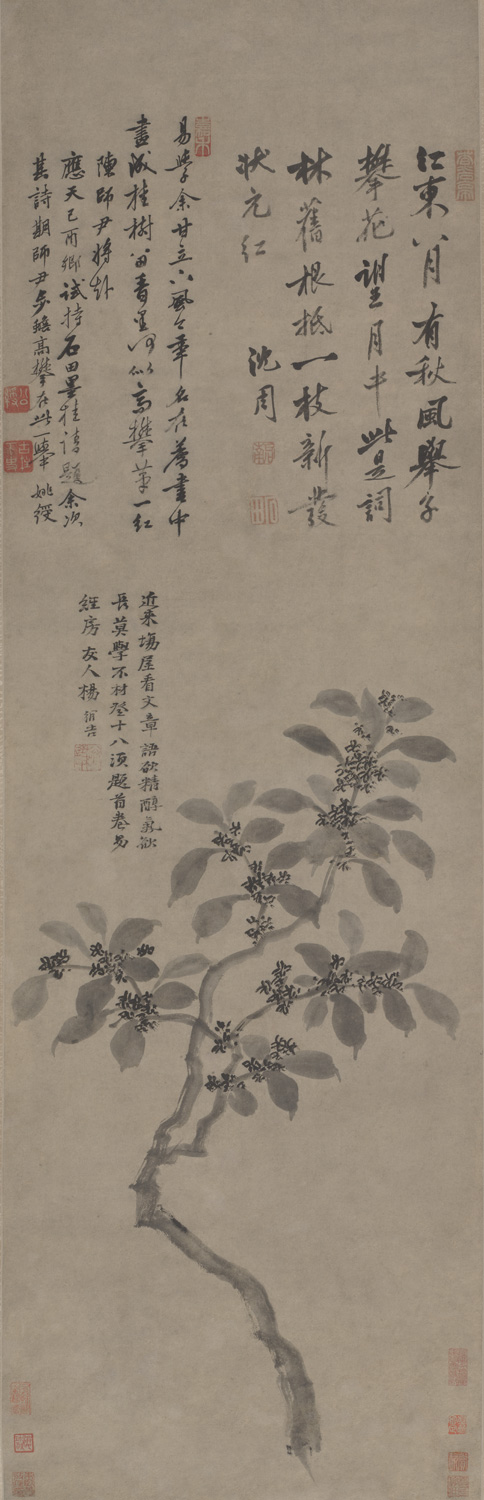 江東八月有秋風舉子
攀花望月中此是詞
林舊根柢一枝新發
狀元紅
沈周
易學余甘立下風今年名在薦書中
畫成桂樹留香里何似高攀第一紅
陳師尹將赴
應天己酉鄉試持石田墨桂請題余次
其詩期師尹必高攀在此一舉 姚綬
近來場屋看文章語欲精醇氣欲
長莫學不材登十八須題首卷勞
經房 友人楊